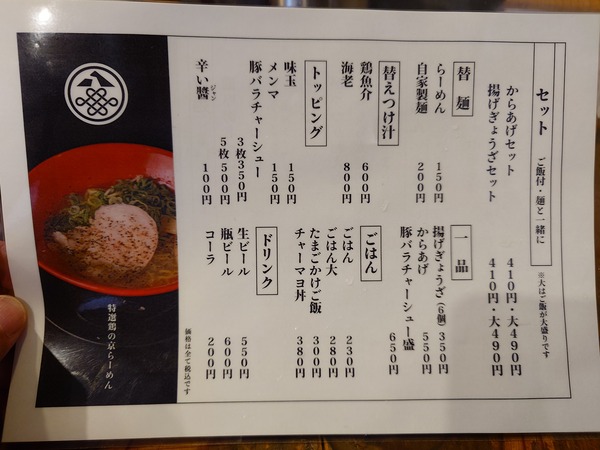 セット ご飯付・麺と一緒に
※大はご飯が大盛りです
からあげセット 410円・大490円
揚げぎょうざセット 410円・大490円
替麺
らーめん 150円
自家製麺 200円
替えつけ汁
鶏魚介 600円
海老 800円
トッピング
味玉 150円
メンマ 150円
豚バラチャーシュー
3枚350円
5枚500円
辛い醬 ジャン 100円
一品
揚げぎょうざ(6個) 350円
からあげ 550円
豚バラチャーシュー盛 650円
ごはん
ごはん 230円
ごはん大 280円
たまごかけご飯 300円
チャーマヨ丼 380円
ドリンク
生ビール 550円
瓶ビール 600円
コーラ 200円
価格は全て税込です
特選鶏の京らーめん